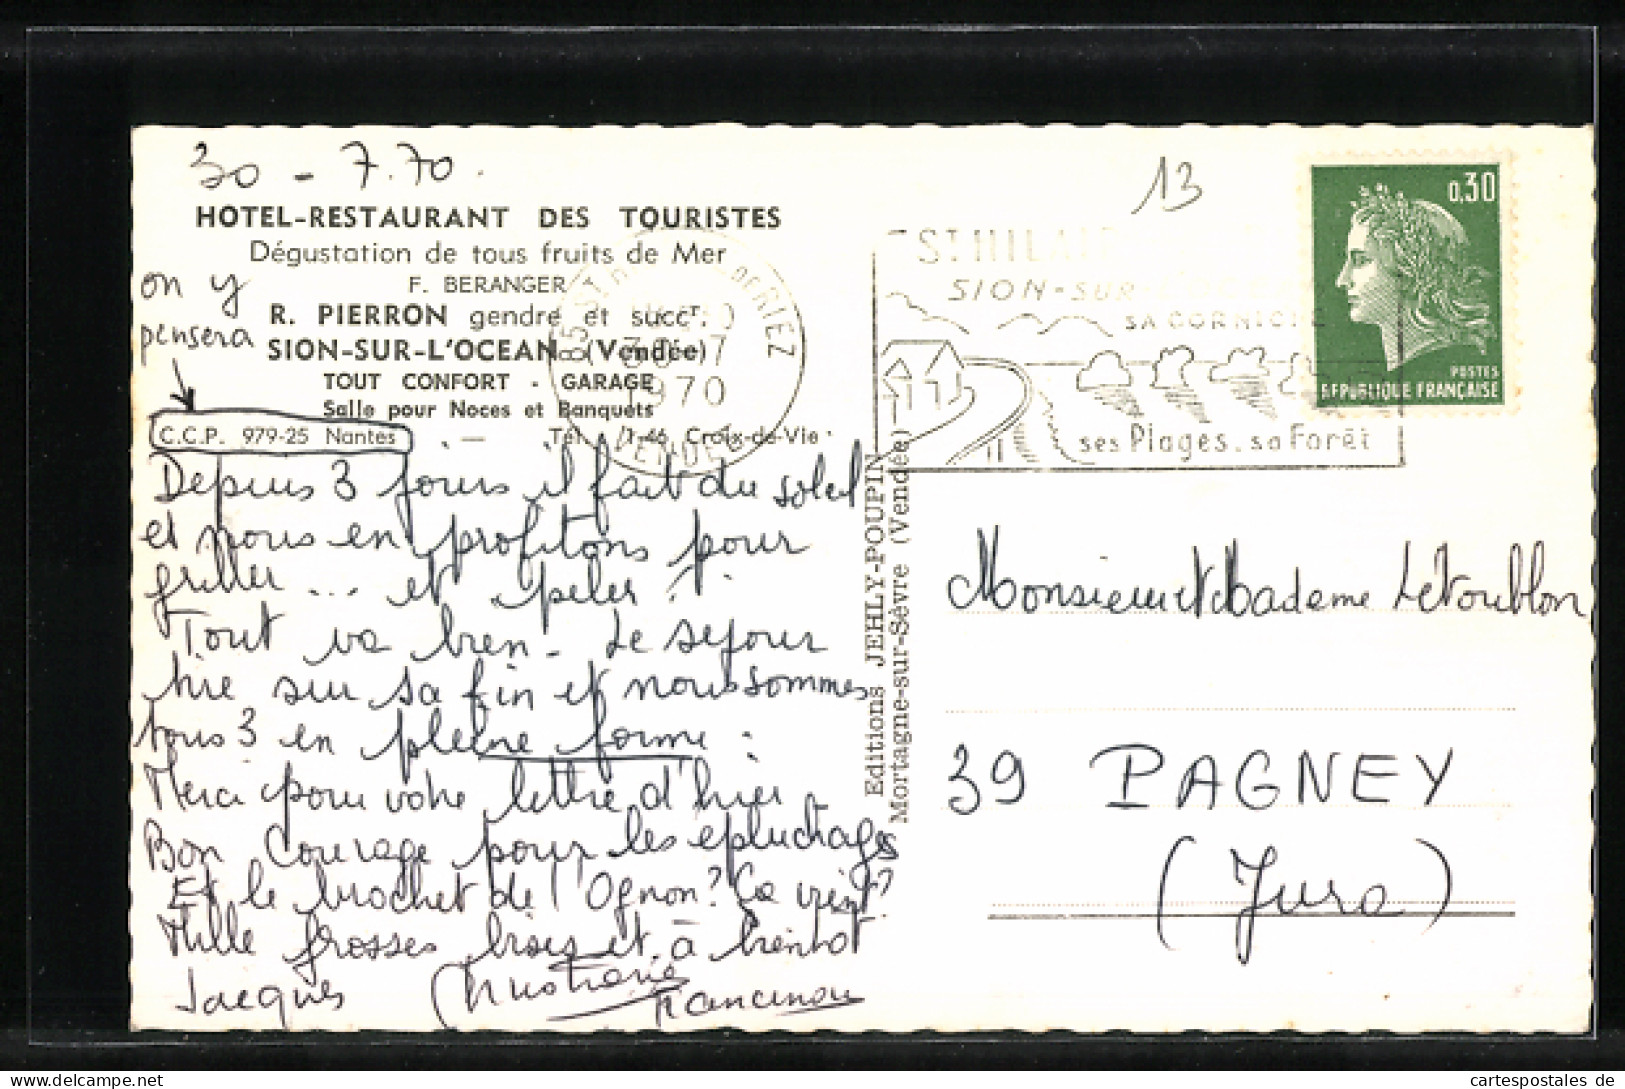 30 - 7.70.
HOTEL-RESTAURANT DES TOURISTES
Dégustation de tous fruits de Mer
F. BERANGER
R. PIERRON gendre et succr.
SION-SUR-L'OCEAN (Vendée)
TOUT CONFORT - GARAGE
Salle pour Noces et Banquets
C.C.P. 979-25 Nantes — Tél. 71-46 Croix-de-Vie
on y
pensera
Depuis 3 jours il fait du soleil
et nous en profitons pour
griller... et peler !
Tout va bien - Le séjour
tire sur sa fin et nous sommes
tous 3 en pleine forme :
Merci pour votre lettre d'hier -
Bon courage pour les épluchages
Et le brochet de l'Ognon? Ca vient?
Mille grosses bises et à bientôt
Jacques Christiane
Editions JEHLY-POUPIN
Mortagne-sur-Sèvre (Vendée)
13
85 ST RIEZ
30-7
1970
VENDEE
ST HILAI
SION-SUR-L'OCE
SA CORNICHE
ses Plages. sa Forêt
0,30
POSTES
REPUBLIQUE FRANÇAISE
Monsieur et Madame Létoublon
39 PAGNEY
(Jura)
cartespostales de